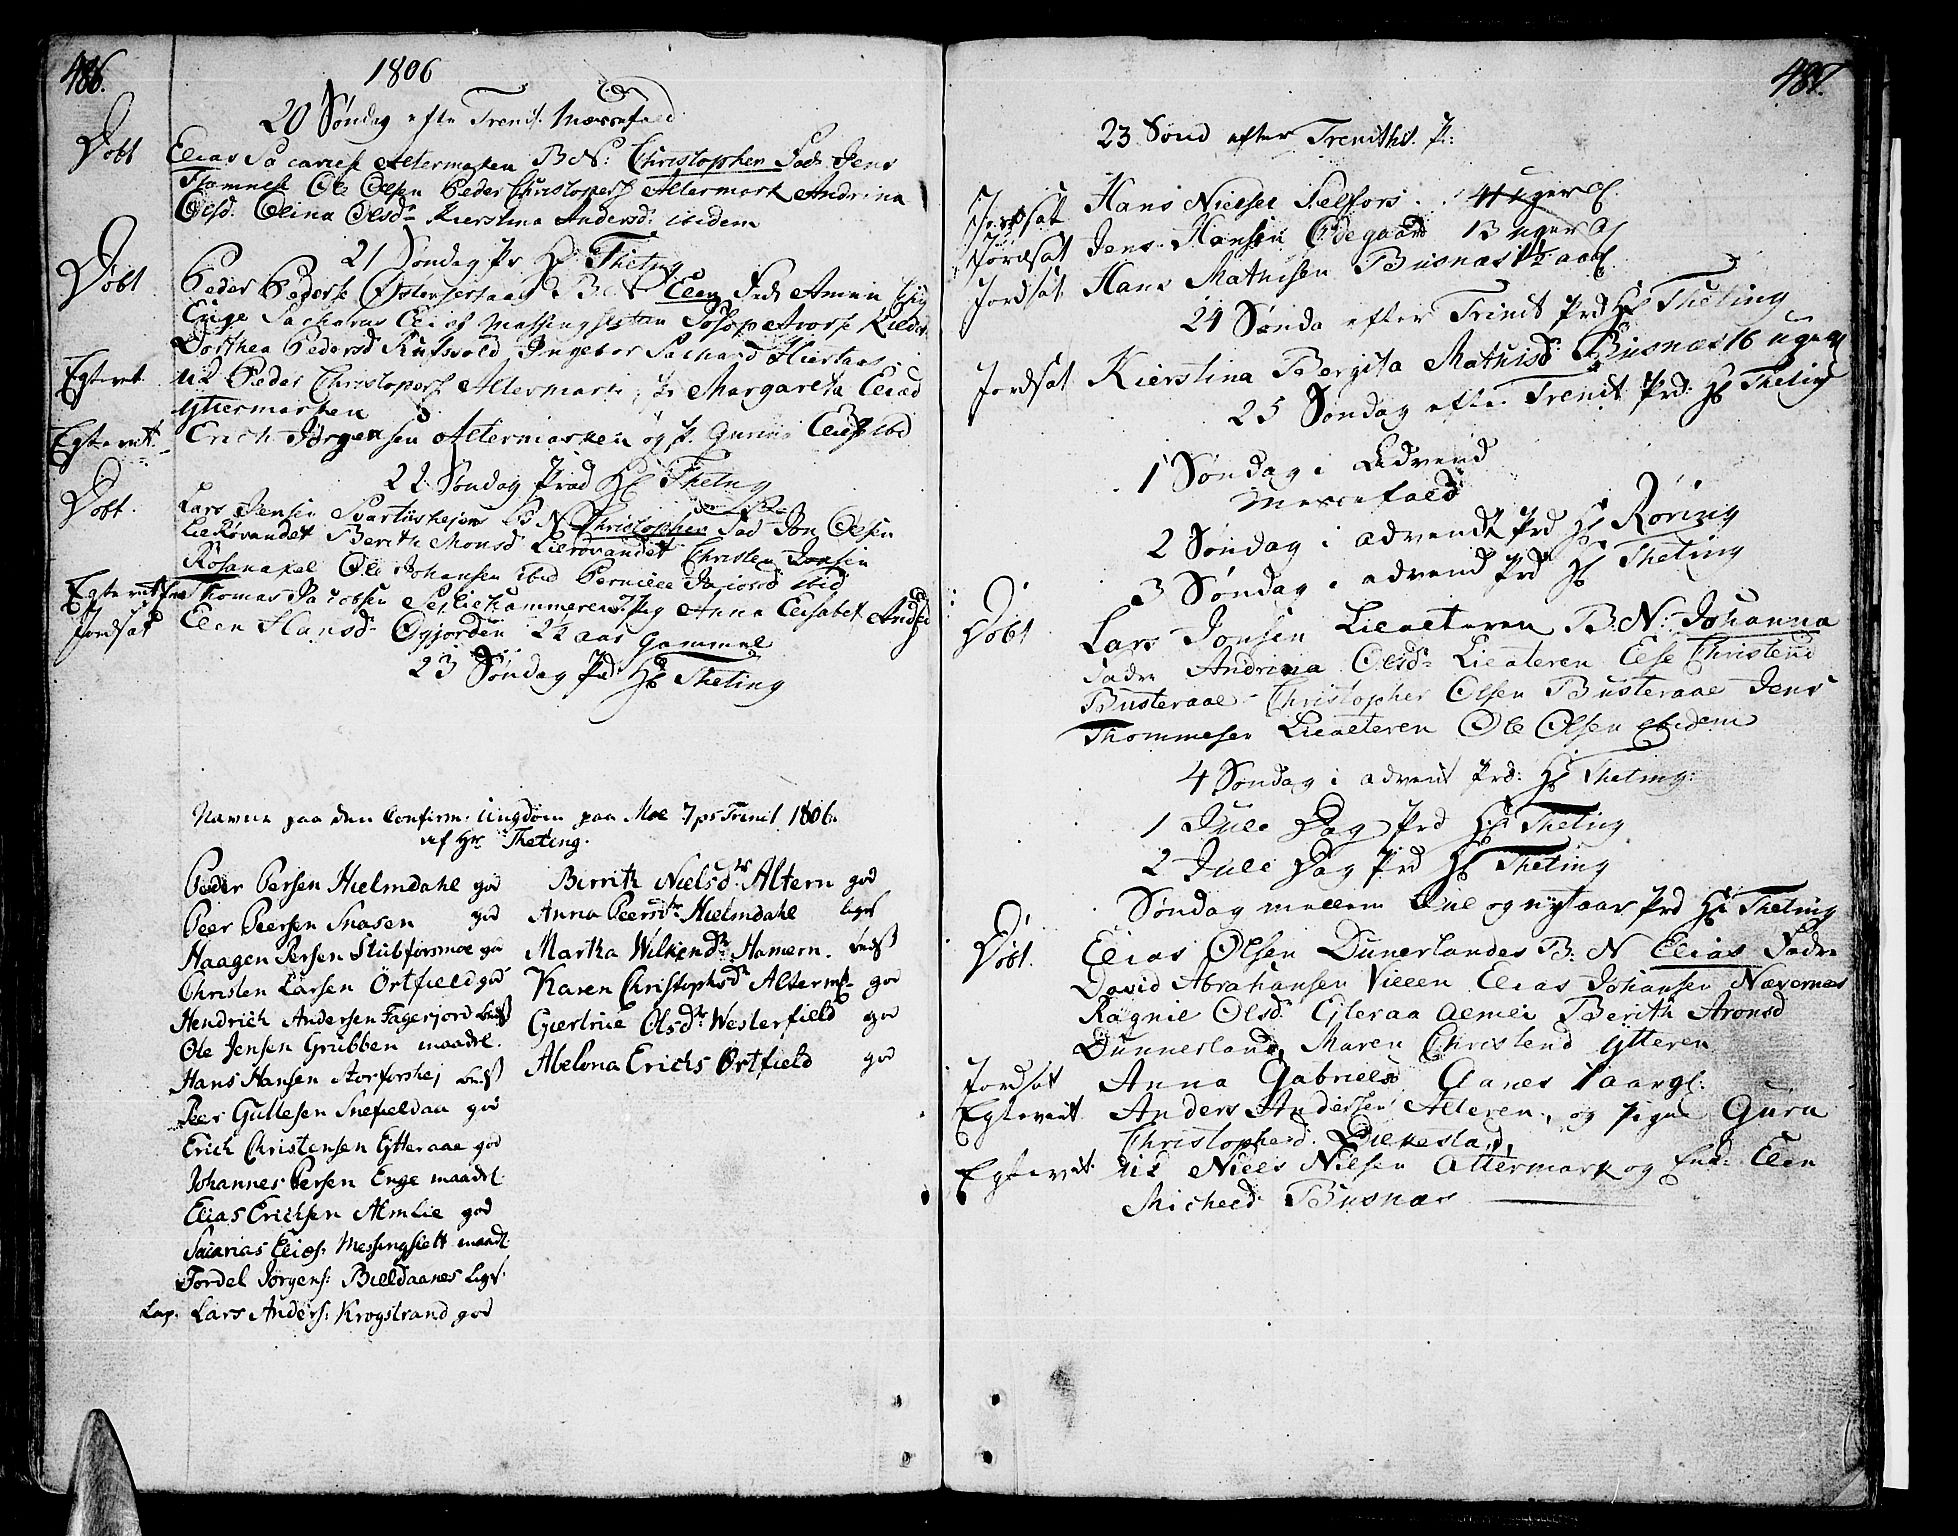 486.
1806
20 Søndag efter Trenit. Mæssefald
Døbt Elias Sacariæs Altermarken B N: Christopher Fadr. Jens
Ole Olsen Peder Christophers Altermark Andrina
Olsd. Elina Olsdr Kierstina Andersd: ibidem
21 Søndag Pr Hr Theting
Døbt Peder Peders B N Elen Fadr
Enge Sacharias Elias Massingsletten
Dorthea Pedersd Rufsvold Ingebor
Egteviet uk Peder Christophers Altermark, Margareta Eliæd
Yttermarken
Egteviet Erich Jørgensen Altermarken og p. Gurina Eliæ ibd
22 Søndag Præd Hr Theting
Døbt. Lars Jensen B N Christopher Fad Jon Olsen
Lierøvandet Berith Monsd Lierøvandet Christen Jonsen
Rosanakel Ole Johansen ibid Pernille ibid
Egteviet Thomas Jacobsen Pig Anna Elisabet Andsd
Jordsat Elen Hansdr Øgjorden 2½ aar gammel
23 Søndag Præd Hr Theting
Navne paa den Confirm: ungdom paa Moe 7 ps Trinit 1806.
af Hr Theting.
Peder Persen Hielmdahl god
Peer Peersen Snasen god
Haagen Persen Stubforsmoe god
Christen Larsen Ortfield god
Hendrich Andersen Fagerjord
Ole Jensen Grubben maadel.
Hans Hansen Storforshej
Peer Gullesen Snefieldaa god
Erich Christensen Ytteraae god
Johannes Persen Enge maadel
Elias Erichsen Almlie god
Sacarias Elies: Messingslett maadl.
Tordel Jørgens: Bieldaanes liges.
Lap. Lars Anders: Krogstrand god
Berrith Nielsdtr Altern god
Anna Peersdtr Hielmdahl liges
Martha Wilkendtr Hamern.
Karen Christophsdtr Alterm: god
Giertrue Olsdtr Westerfield god
Abelona Erichs Ortfield god
487.
23 Sønd efter Trenithi. P:
Jordsat Hans Nielsen Selfors 4 uger gl.
Jordsat Jens Hansen Ødegaard 13 uger gl
Jordsat Hans Mathisen Busnæs 1½ aar
24 Sønda efter Trinit Prd Hr Theting
Jordsat Kierstina Bergita Mathisd Busnæs 16 uger
25 Søndag efter Trenit Prd: Hr Theting
1 Søndag i Advend
Messefald
2 Søndag i advendt Prd Hr Røring
3 Søndag i advend Prd Hr Theting
Døbt Lars Jonsen Liealteren B. N: Johanna
Fadre Andrina Olsdr Liealteren Else Christend
Busteraae Christopher Olsen Busteraae Jens
Thommesen Liealteren Ole Olsen ibidem
4 Søndag i advent Prd: Hr Theting:
1 Jule Dag Prd Hr Theting
2 Jule Dag Prd Hr Theting
Søndag mellem Jul og nytaar Prd Hr Theting
Døbt. Elias Olsen Dunerlandes B: N Elias Fadre
David Abrahansen Villen Elias Johansen Nævernæs
Ragnil Olsd Berith Aronsd
Dunnerland, Maren Christend Ytteren
Jordsat Anna Gabrielsd Aanes 1 aar gl.
Egteviet Anders Andersen Alteren, og Pige Gura
Christopherd.
Egteviet uk Niels Nilsen Altermark og Enk: Elen
Micheld Busnæs